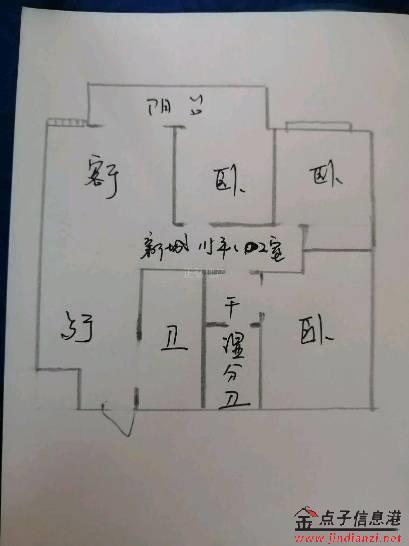 阳台
客厅
卧
卧
新城川年1002室
干
卫
湿
分
卫
卧
点子信息港
www.jindianzi.net